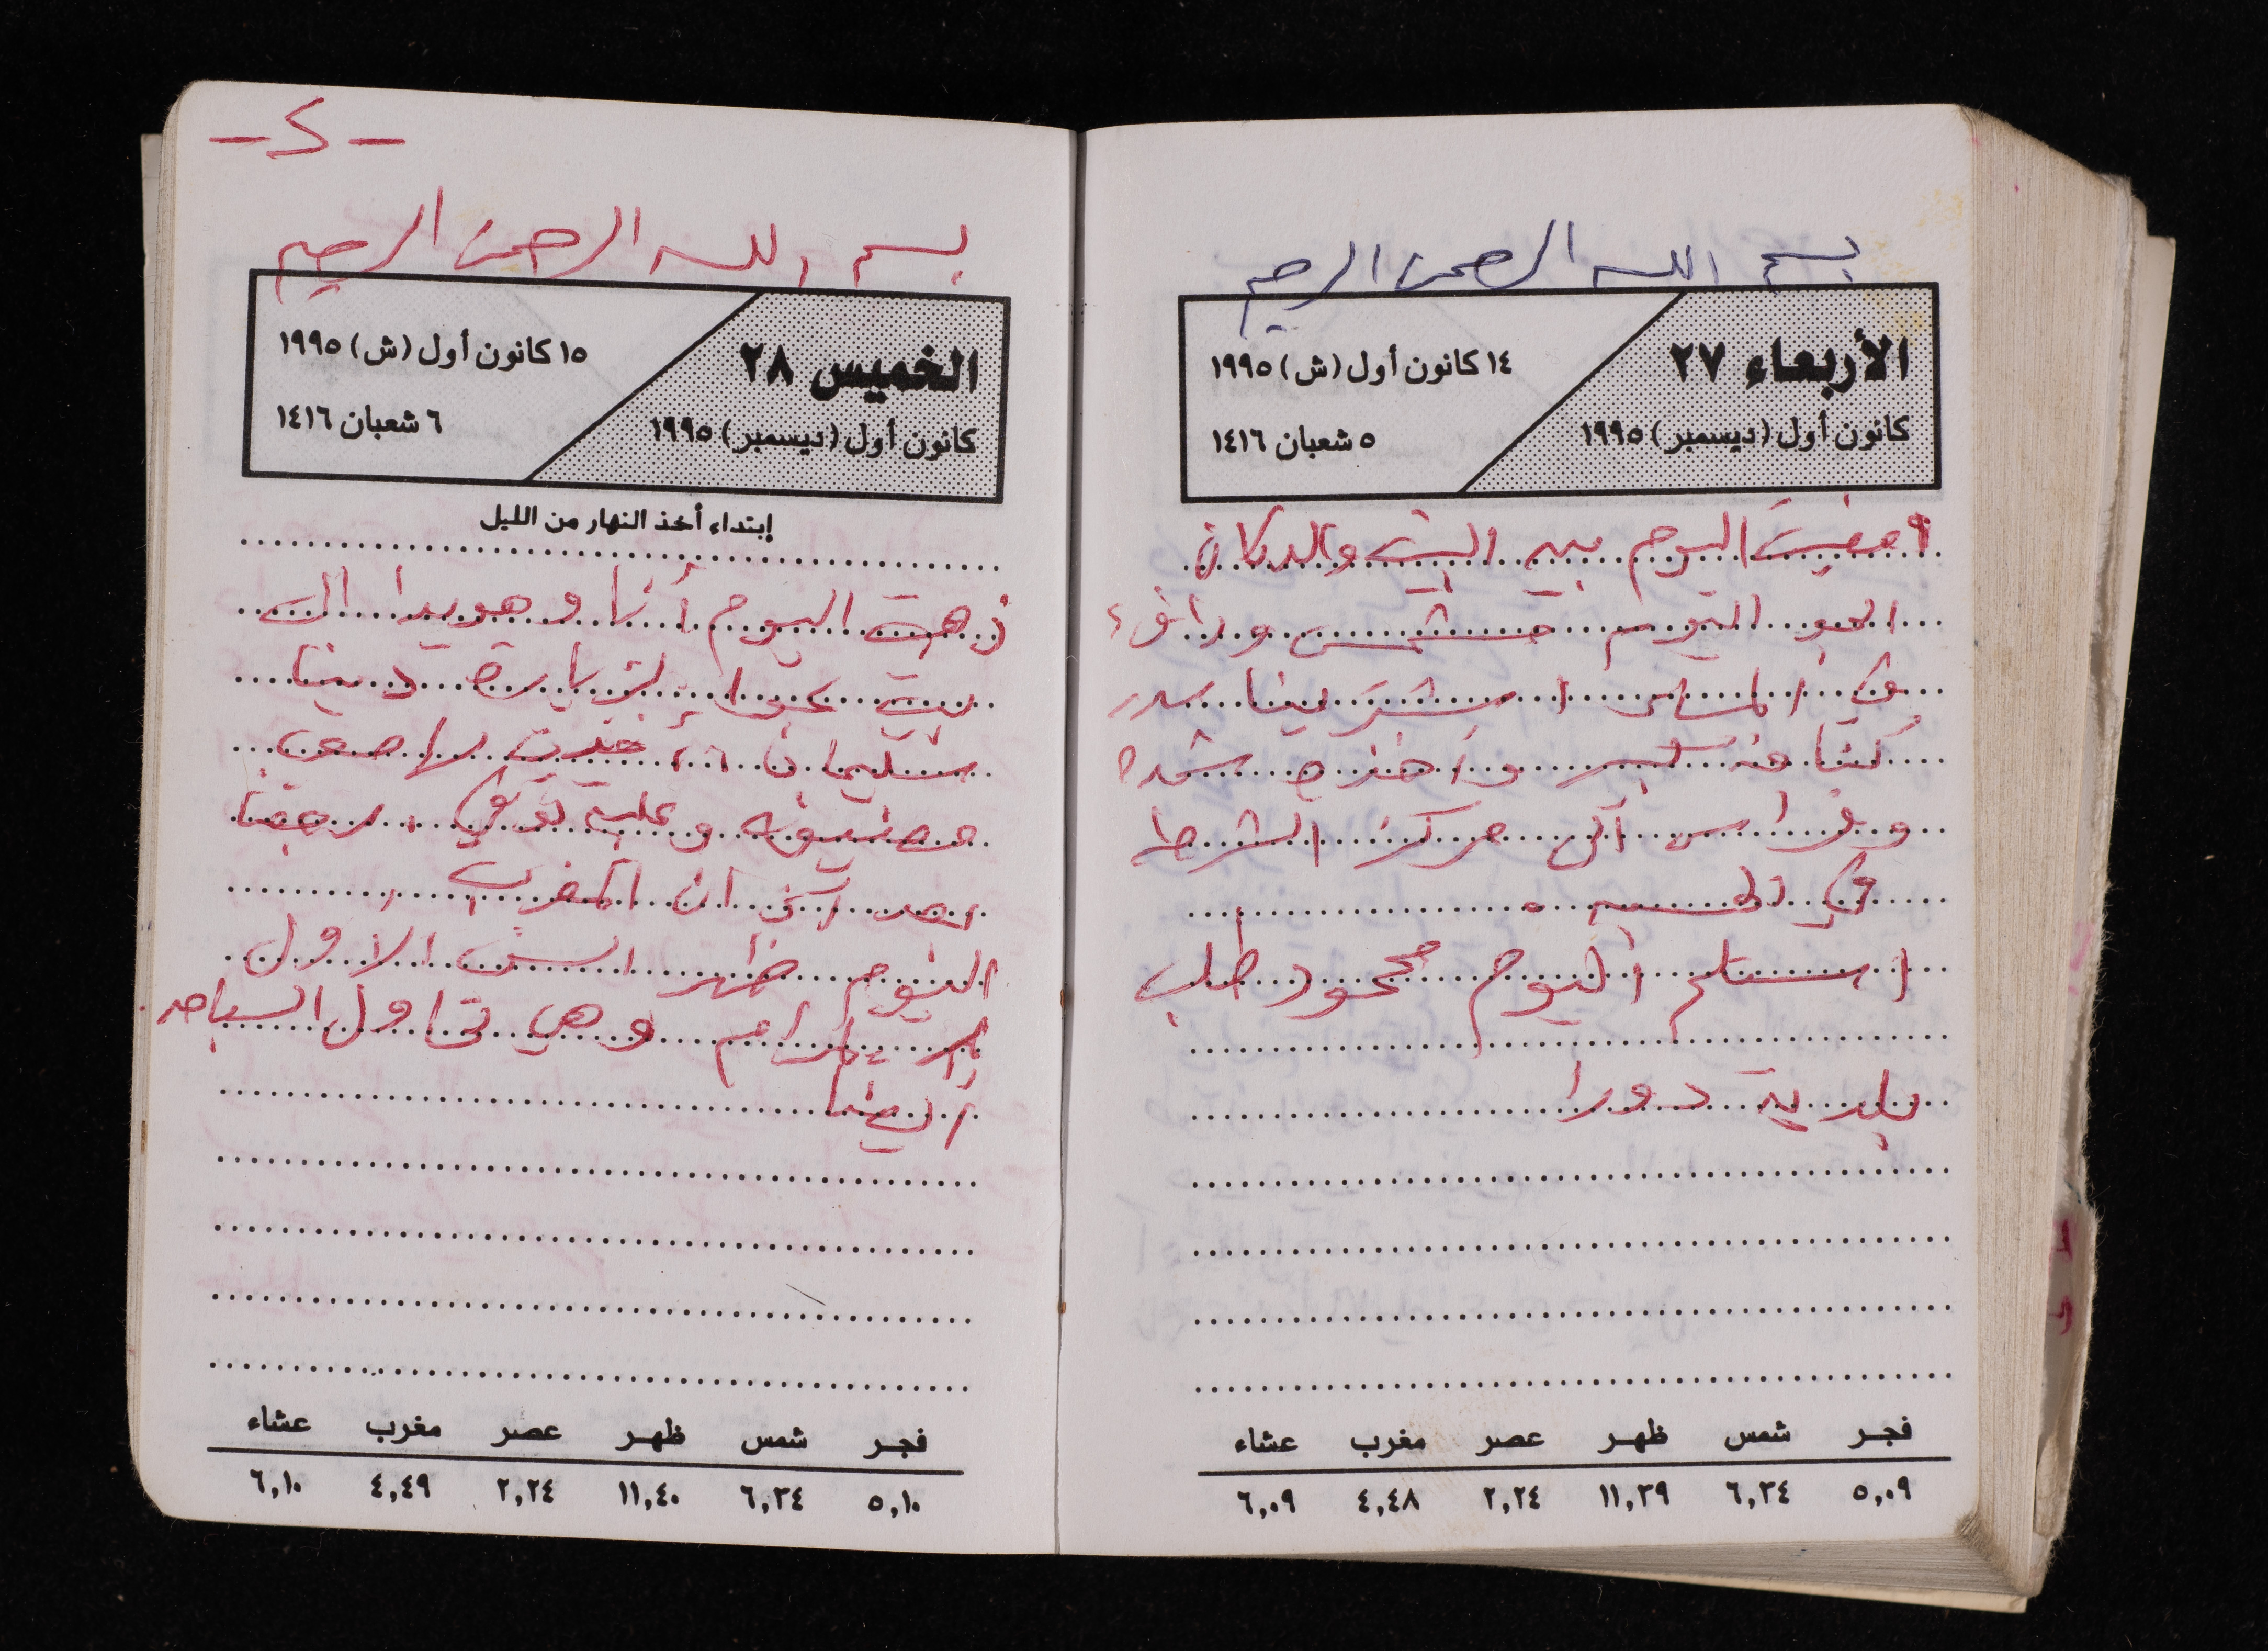 بسم الله الرحمن الرحيم
الأربعاء ٢٧
كانون أول (ديسمبر) ١٩٩٥
١٤ كانون أول (ش) ١٩٩٥
٥ شعبان ١٤١٦
أمضيت اليوم بين البيت والدكان
الجو اليوم مشمس ودافئ
في المساء اشترينا سدر
كنافه كبير وأخذه
وفراس الى مركز الشرطه
في
استلم اليوم محمود طلب
بلدية دورا
فجر شمس ظهر عصر مغرب عشاء
٥,٠٩ ٦,٣٤ ١١,٣٩ ٢,٢٤ ٤,٤٨ ٦,٠٩
-٢-
بسم الله الرحمن الرحيم
الخميس ٢٨
كانون أول (ديسمبر) ١٩٩٥
١٥ كانون أول (ش) ١٩٩٥
٦ شعبان ١٤١٦
إبتداء أخذ النهار من الليل
ذهبت اليوم أنا وهويدا الى
بيت لزيارة دينا
سليمان أخذت لها صحن
وعلبة رجعنا
بعد اذان المغرب
اليوم ظهر السن الاول
وهي تحاول السباحه
ايضا
فجر شمس ظهر عصر مغرب عشاء
٥,١٠ ٦,٣٤ ١١,٤٠ ٢,٢٤ ٤,٤٩ ٦,١٠